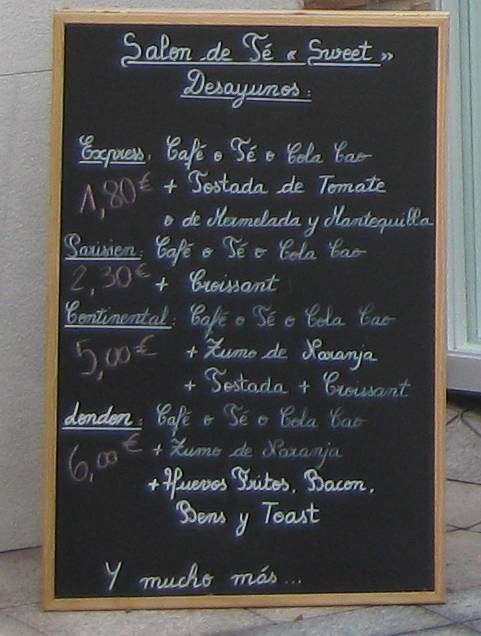 Salon de Té « Sweet »
Desayunos :
Express. Café o Té o Cola Cao
1,80 € + Tostada de Tomate
o de Mermelada y Mantequilla
Parisien: Café o Té o Cola Cao
2,30 € + Croissant
Continental: Café o Té o Cola Cao
5,00 € + Zumo de Naranja
+ Tostada + Croissant
London: Café o Té o Cola Cao
6,00 € + Zumo de Naranja
+ Huevos Fritos, Bacon,
Bens y Toast
Y mucho más...